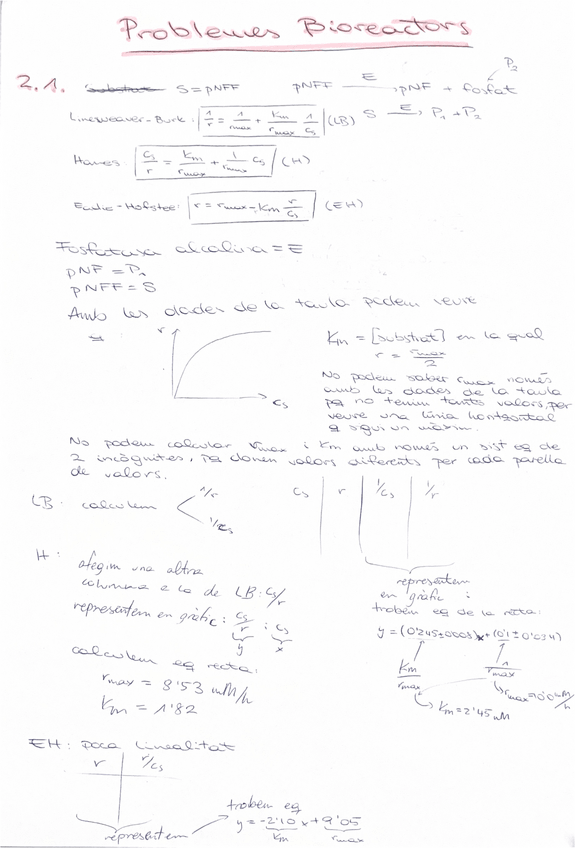 Problemes Bioreactors
2.1. S = pNFF pNFF —E→ pNF + fosfat
P₂
Lineweaver-Burk: 1/r = 1/rmax + Km/rmax 1/Cs (LB) S —E→ P₁ + P₂
Hanes: Cs/r = Km/rmax + 1/rmax Cs (H)
Eadie-Hofstee: r = rmax - Km r/Cs (EH)
Fosfatasa alcalina = E
pNF = P₁
pNFF = S
Amb les dades de la taula podem veure
r
Cs
Km = [substrat] en la qual
r = rmax/2
No podem saber rmax només
amb les dades de la taula
pq no tenim tants valors, per
veure una línia horitzontal
q sigui un màxim.
No podem calcular rmax i Km amb només un sist eq de
2 incògnites, pq donen valors diferents per cada parella
de valors.
LB: calculem 1/r
1/Cs
Cs r 1/Cs 1/r
representem
en gràfic i
trobem eq de la recta:
y = (0'245±0'003)x + (0'1 ± 0'034)
Km/rmax 1/rmax
Km = 2'45 mM
H: afegim una altra
columna a la de LB: Cs/r
representem en gràfic: Cs/r i Cs
y x
calculem eq recta:
rmax = 8'53 mM/h
Km = 1'82
EH: poca linealitat
r r/Cs
representem
trobem eq
y = -2'10 x + 9'05
Km rmax